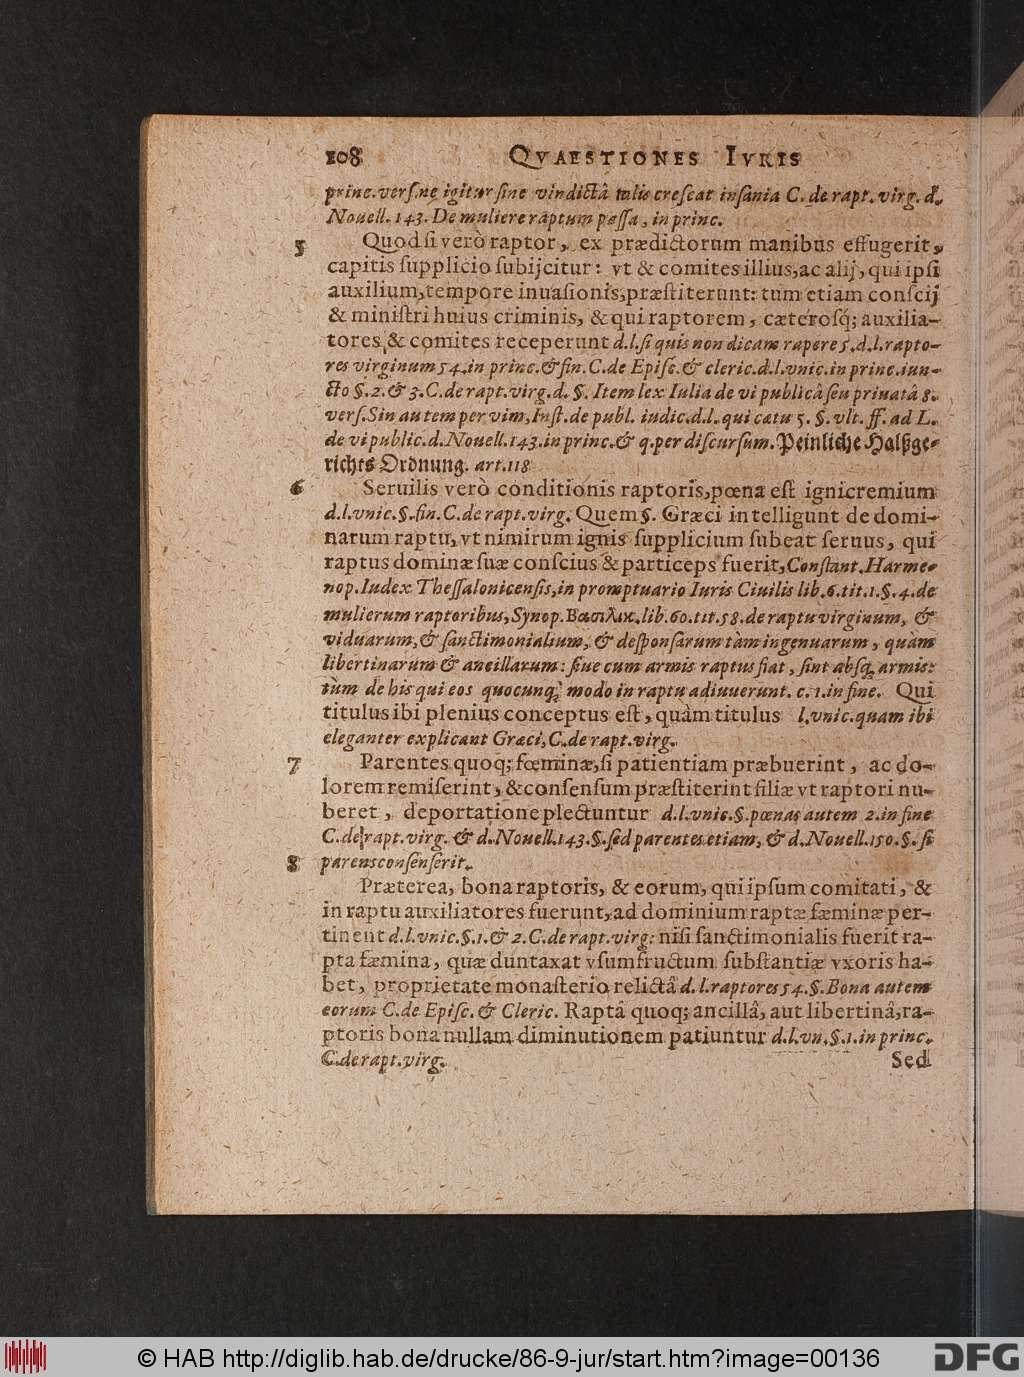 108 QVAESTIONES IVRIS
princ. vers. ne igitur sine vindictâ talis crescat insânia C. de rapt. virg. d.
Nouell. 143. De muliere raptum passa, in princ.
5 Quod si verò raptor, ex prædictorum manibus effugerit,
capitis supplicio subijcitur: vt & comites illius, ac alij, qui ipsi
auxilium, tempore inuasionis, præstiterunt: tum etiam conscij
& ministri huius criminis, & qui raptorem, cæterosq́; auxilia-
tores, & comites receperunt d. l. si quis non dicam rapere 5. d. l. rapto-
res virginum 54. in princ. & fin. C. de Episc. & cleric. d. l. vnic. in princ. iun-
cto §. 2. & 3. C. de rapt. virg. d. §. Item lex Iulia de vi publicâ seu priuatâ 8.
vers. Sin autem per vim, Inst. de publ. iudic. d. l. qui cœtu 5. §. vlt. ff. ad L.
de vi public. d. Nouell. 143. in princ. & q. per discursum. Peinliche Halßge-
richts Ordnung. art. 118
6 Seruilis verò conditionis raptoris, pœna est ignicremium
d. l. vnic. §. fin. C. de rapt. virg. Quem §. Græci intelligunt de domi-
narum raptu, vt nimirum ignis supplicium subeat seruus, qui
raptus dominæ suæ conscius & particeps fuerit, Constant. Harme-
nop. Iudex Thessalonicensis, in promptuario Iuris Ciuilis lib. 6. tit. 1. §. 4. de
mulierum raptoribus, Synop. Βασιλικ. lib. 60. tit. 58. de raptu virginum, &
viduarum, & sanctimonialium, & desponsarum tàm ingenuarum, quàm
libertinarum & ancillarum: siue cum armis raptus fiat, sint absq; armis:
tùm de his qui eos quocunq; modo in raptu adiuuerunt. c. 1. in fine. Qui
titulus ibi plenius conceptus est, quàm titulus l. vnic. quam ibi
eleganter explicant Græci, C. de rapt. virg.
7 Parentes quoq; fœminæ, si patientiam præbuerint, ac do-
lorem remiserint, & consensum præstiterint filiæ vt raptori nu-
beret, deportatione plectuntur d. l. vnic. §. pœnas autem 2. in fine
C. de rapt. virg. & d. Nouell. 143. §. sed parentes etiam, & d. Nouell. 150. §. si
8 parens consenserit.
Præterea, bona raptoris, & eorum, qui ipsum comitati, &
in raptu auxiliatores fuerunt, ad dominium raptæ fæminæ per-
tinent d. l. vnic. §. 1. & 2. C. de rapt. virg: nisi sanctimonialis fuerit ra-
pta fæmina, quæ duntaxat vsumfructum substantiæ vxoris ha-
bet, proprietate monasterio relictâ d. l. raptores 54. §. Bona autem
eorum C. de Episc. & Cleric. Raptâ quoq; ancillâ, aut libertinâ, ra-
ptoris bona nullam diminutionem patiuntur d. l. vn. §. 1. in princ.
C. de rapt. virg. Sed
© HAB http://diglib.hab.de/drucke/86-9-jur/start.htm?image=00136 DFG